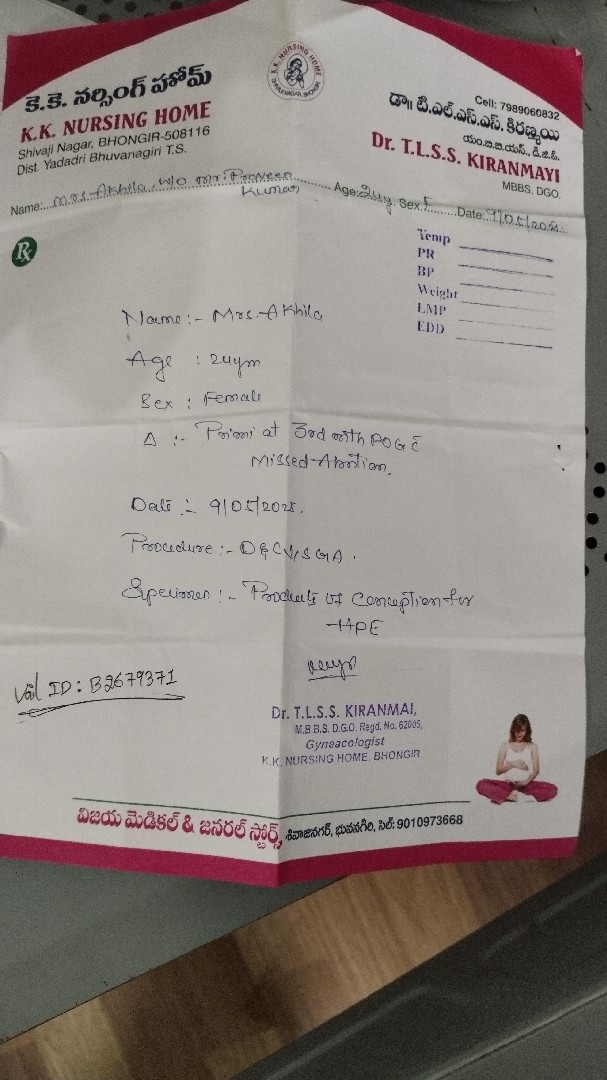 కె.కె. నర్సింగ్ హోమ్
K.K. NURSING HOME
Shivaji Nagar, BHONGIR-508116
Dist. Yadadri Bhuvanagiri T.S.
K.K. NURSING HOME
SHIVAJI NAGAR, BHONGIR
Cell: 7989060832
డా॥ టి.ఎల్.ఎస్.ఎస్. కిరణ్మయి
యం.బి.బి.యస్., డి.జి.ఓ.
Dr. T.L.S.S. KIRANMAYI
MBBS, DGO.
Name: Mrs. Akhila, W/O Mr. Praveen Kumar Age: 24y Sex F Date: 9/05/2025
Rx
Temp
PR
BP
Weight
LMP
EDD
Name:- Mrs. Akhila
Age : 24yrs
Sex : Female
Δ :- Primi at 3rd mth POG c̄
Missed Abortion.
Date :- 9/05/2025.
Procedure :- D&C V/S GA.
Specimen :- Products of Conception for
HPE
Vail ID: B2679371
Dr. T.L.S.S. KIRANMAI,
M.B.B.S. D.G.O. Regd. No. 62005,
Gyneacologist
K.K. NURSING HOME, BHONGIR
విజయ మెడికల్ & జనరల్ స్టోర్స్, శివాజీనగర్, భువనగిరి, సెల్: 9010973668